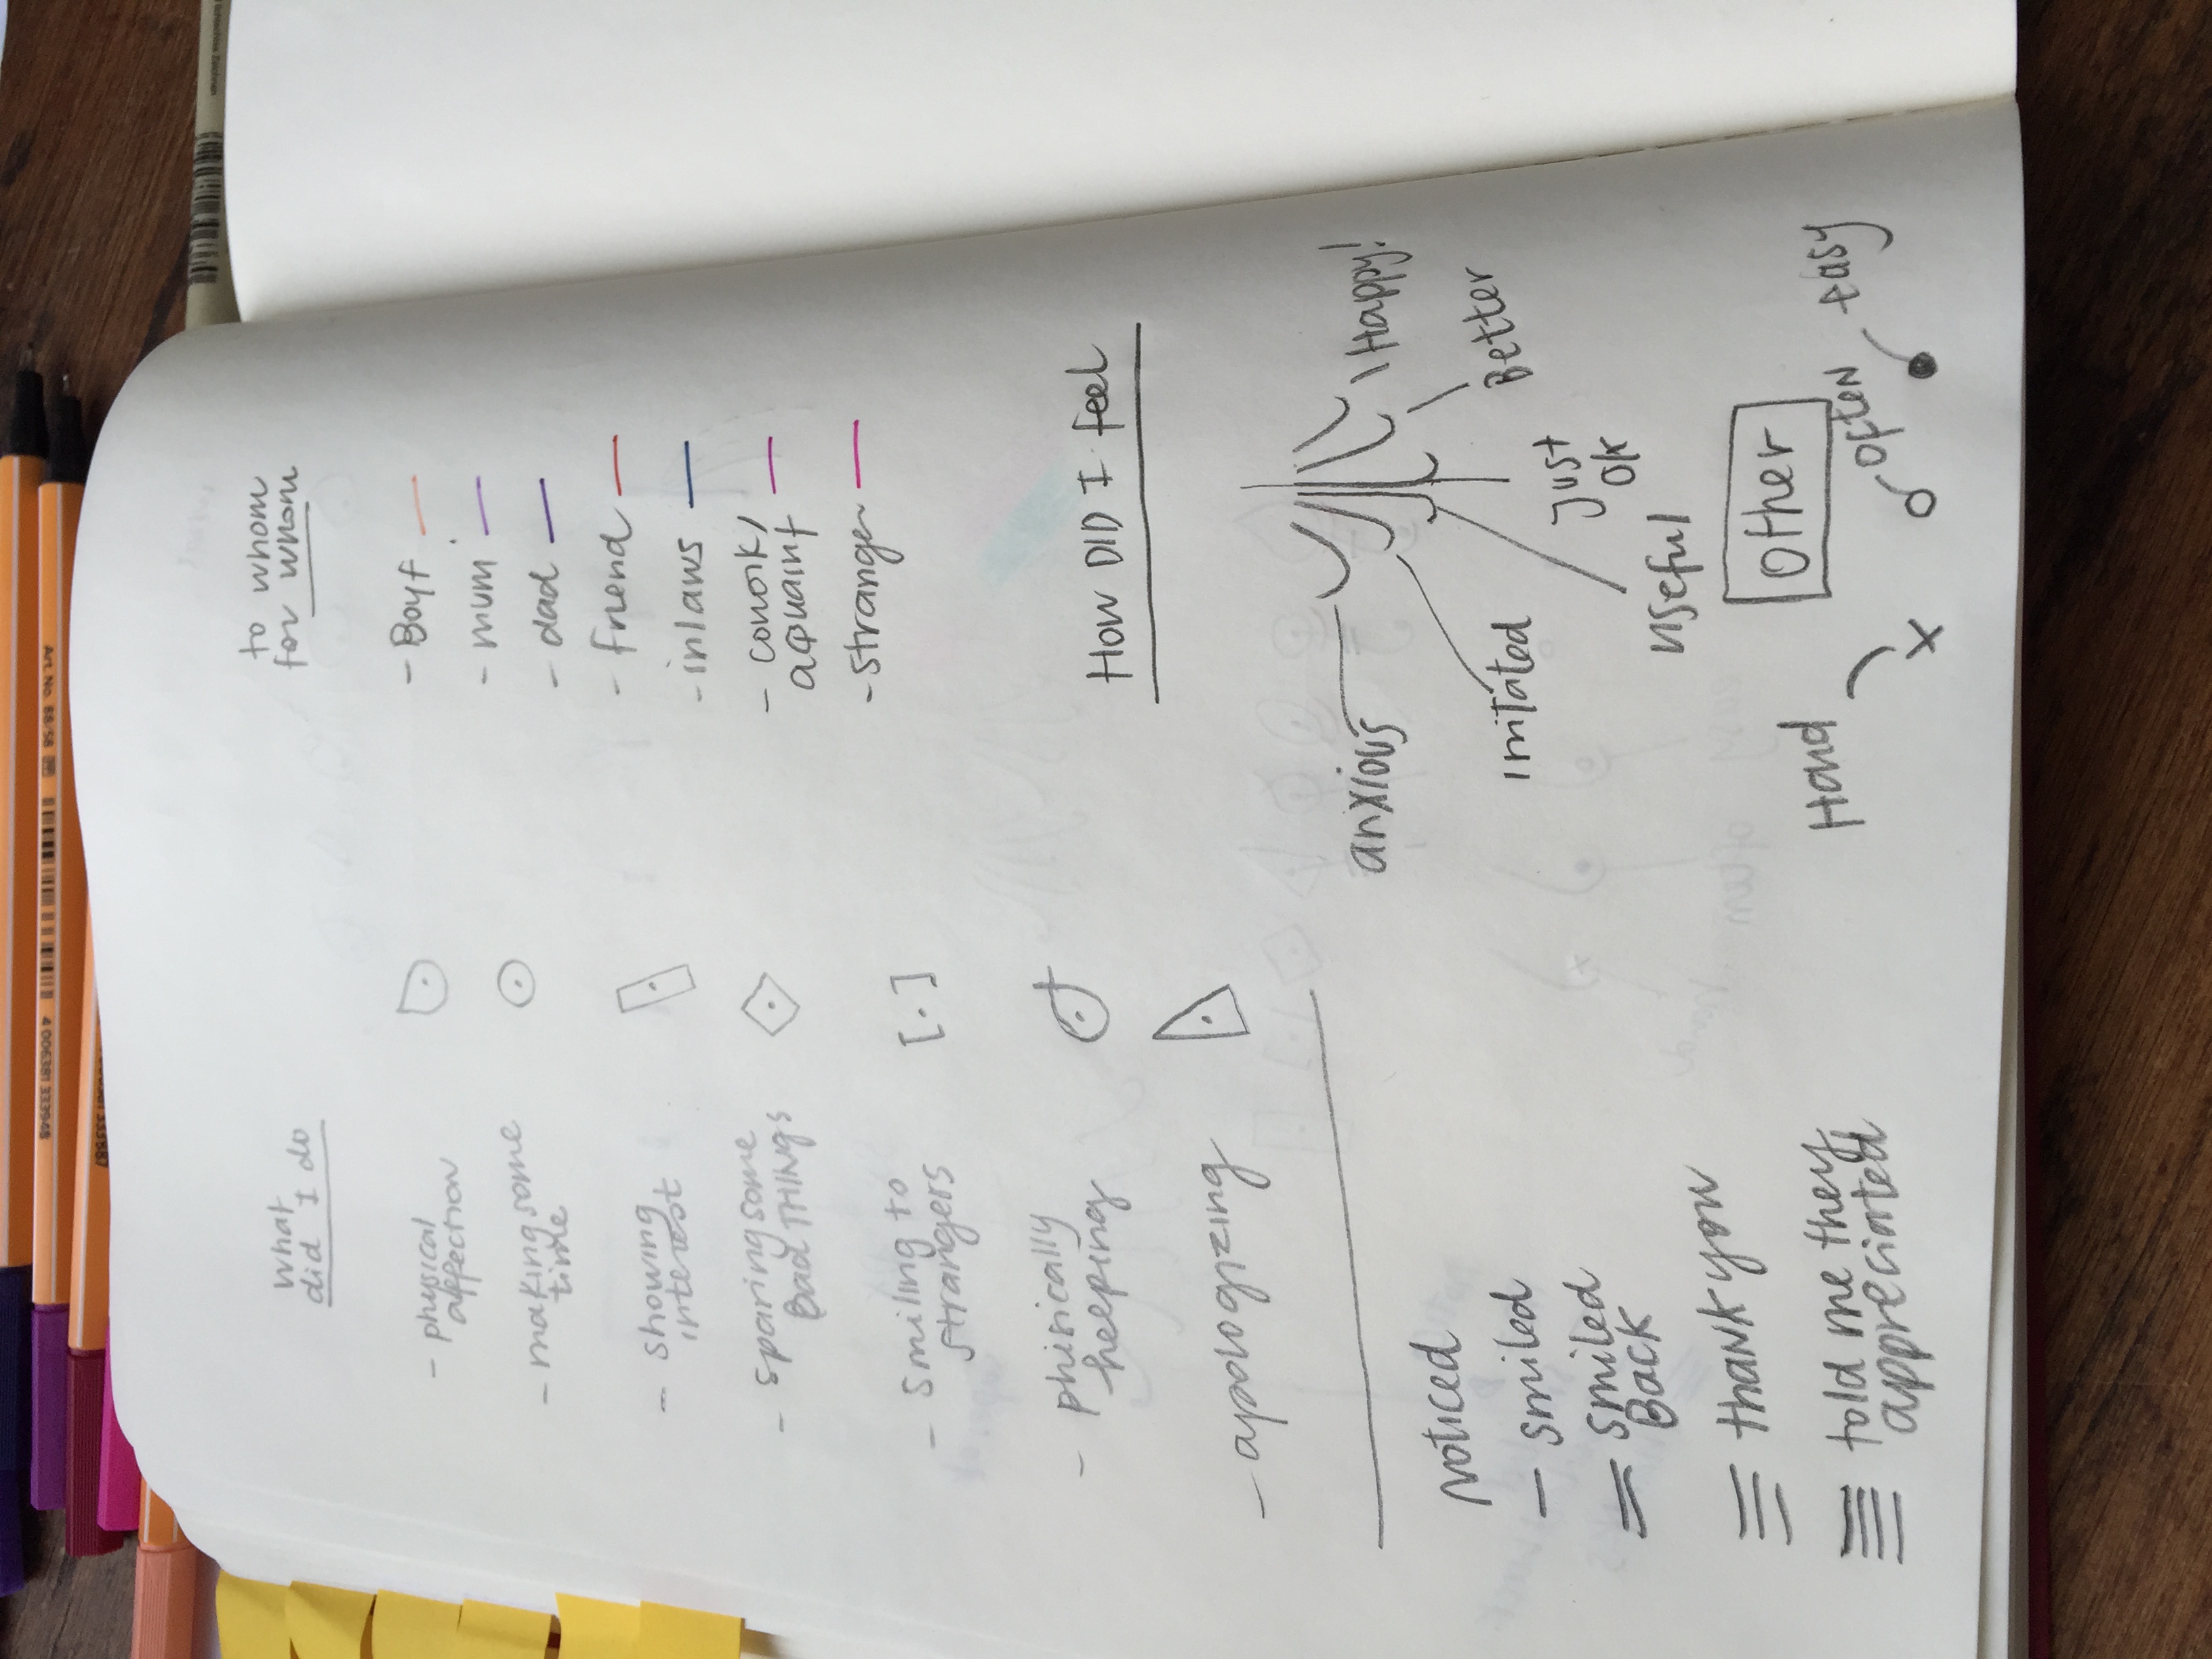 What
did I do
- physical
affection
- making some
time
- showing
interest
- sparing some
Bad THINGS
- smiling to
strangers
- phisically
helping
- apologizing
to whom
for whom
- Boyf
- mum
- dad
- friend
- inlaws
- cowork/
aquaint
- stranger
How DID I feel
anxious
irritated
useful
Just
OK
Better
Happy!
noticed
- smiled
= smiled
Back
thank you
told me they
appreciated
Other
Hard
often
Easy
Art. No. 88/58
4 006381 333948